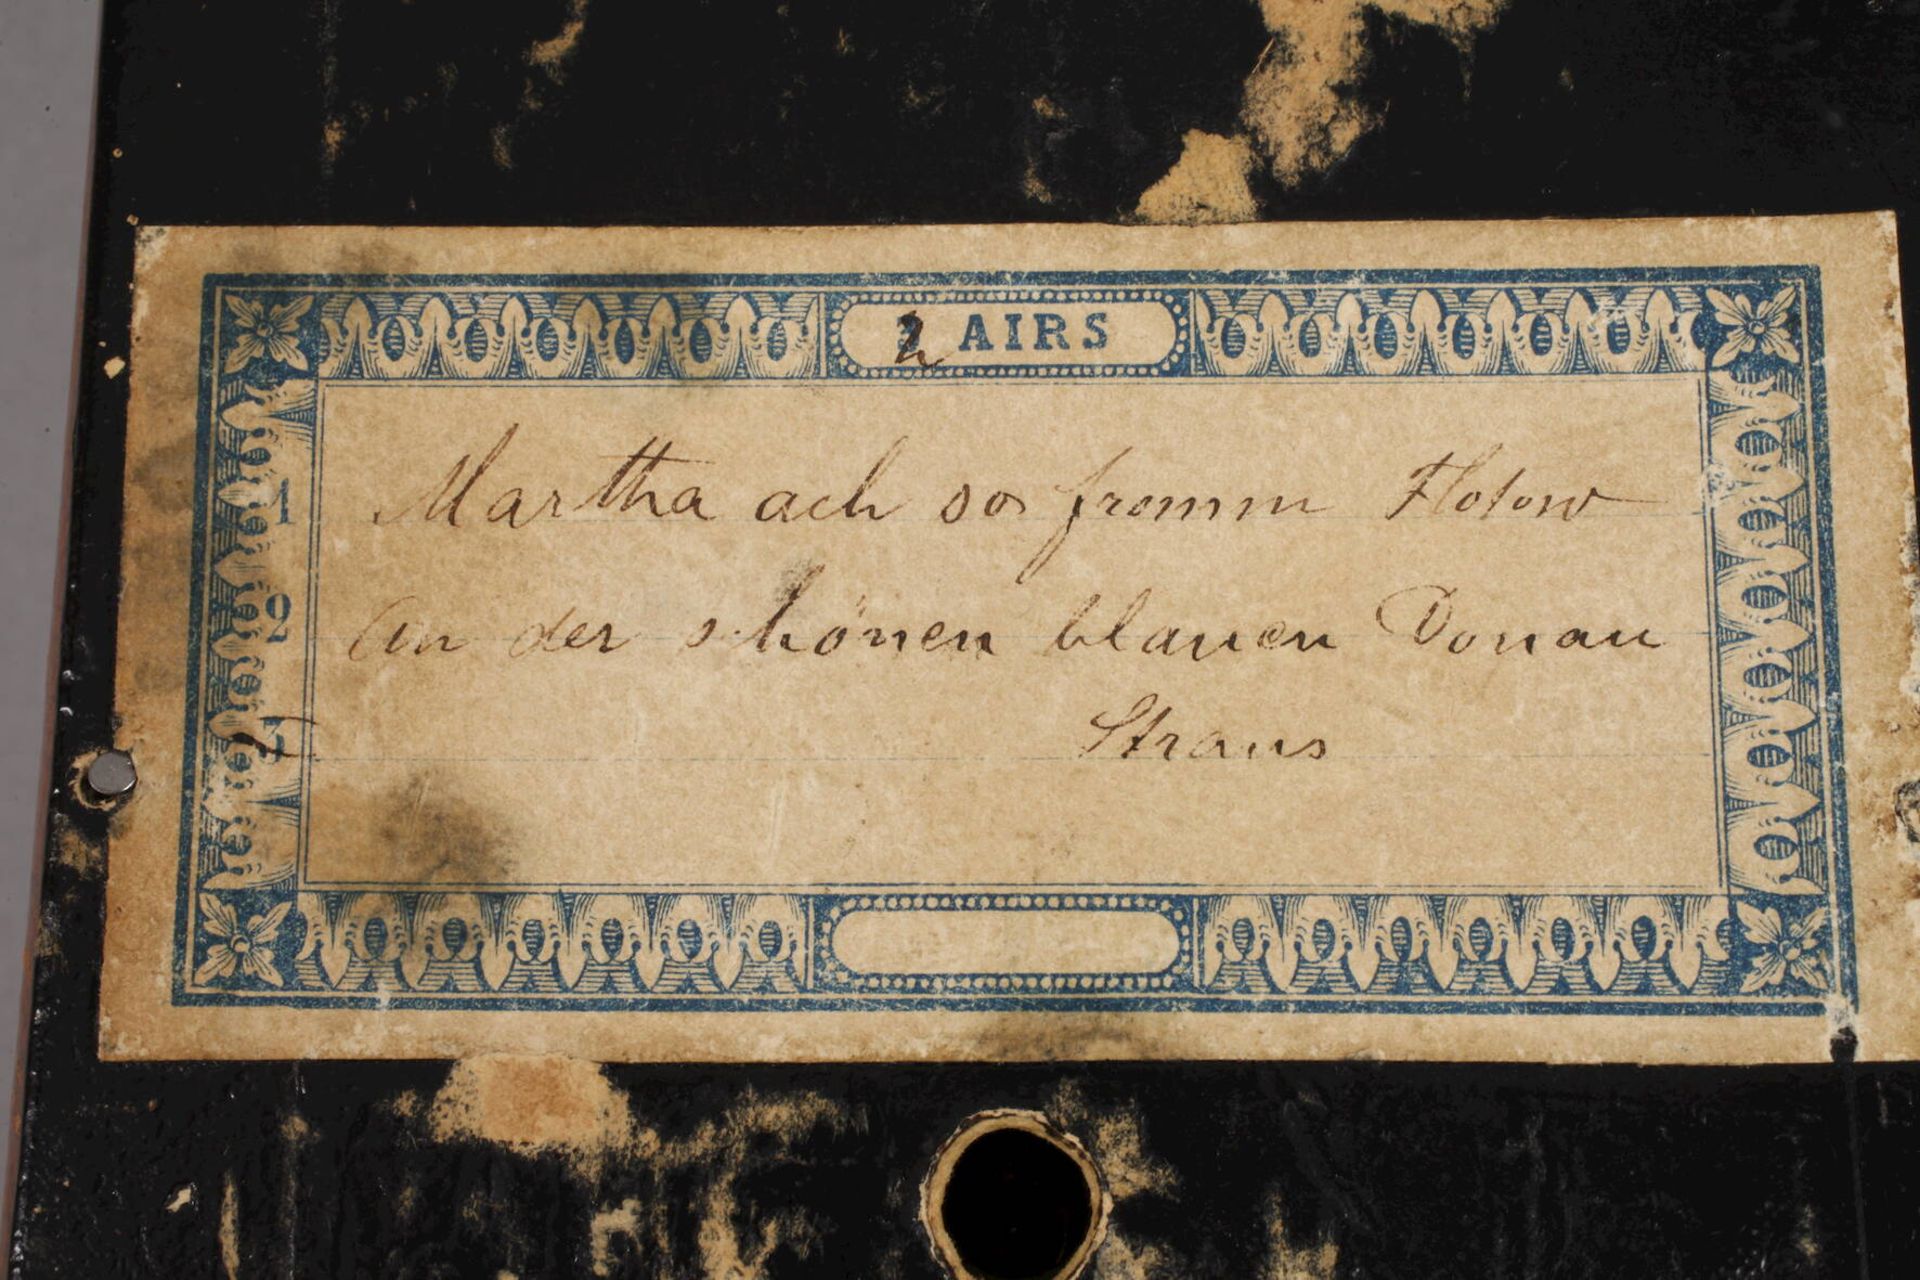 2 AIRS
1 Martha ach so fromm Flotow
2 An der schönen blauen Donau
3 Straus